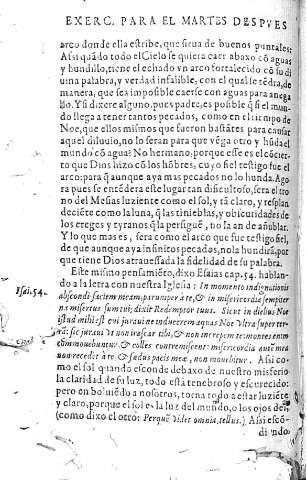 EXERC. PARA EL MARTES DESPVES
arco donde ella estribe, que sirua de buenos puntales:
Assi quãdo todo el Cielo se quiera caer abaxo cõ aguas
y hundillo, tiene el echado vn arco fortalecido cõ su di
uina palabra, y verdad infalible, con el qual se tẽdrà, de
manera, que sea imposible caerse con aguas para anega
llo. Y si dixere alguno. pues padre, es posible q̃ si el mun-
do llega a tener tantos pecados, como en el tiempo de
Noe, que ellos mismos que fueron bastãtes para causar
aquel diluuio, no lo seran para que vẽga otro y hũda el
mundo cõ agua? No hermano. porque esse es el cõcier-
to que Dios hizo cõ los hõbres, cuyo fiel testigo fue el
arco: para q̃ aunque aya mas pecados no lo hunda. Ago
ra pues se entẽdera este lugar tan dificultoso, sera el tro
no del Mesias luziente como el sol, y tã claro, y resplan
deciẽte como la luna, q̃ las tinieblas, y obscuridades de
los ereges y tyranos q̃ la persiguẽ, no la an de añublar.
Y lo que mas es, sera como el arco que fue testigo fiel,
de que aunque aya infinitos pecados, no la hundirà, por
que tiene Dios atrauessada la fidelidad de su palabra.
Este mismo pensamiẽto, dixo Esaias cap. 54. hablan-
do a la letra con nuestra Iglesia: In momento indignationis
Isai. 54.
abscondi faciem meam parumper à te, & in misericordia sempiter
na misertus sum tui; dixit Redemptor tuus. Sicut in diebus Noe
istud mihi est cui iuraui ne inducerem aquas Noe vltra super ter-
rã: sic iuraui vt non irascar tibi, & non increpem te: montes enim
commouebuntur, & colles contremiscent: misericordia autẽ mea
non recedet à te. & fœdus pacis meæ, non mouebitur. Assi co-
mo el sol quando esconde debaxo de nuestro misferio
la claridad de su luz, todo està tenebroso y escurecido:
pero en boluiẽdo a nosotros, torna todo a estar luziẽte
y claro, porque el sol es la luz del mundo, o los ojos del,
(como dixo el otro: Perque videt omnia, tellus.) Assi escõ-
diendo